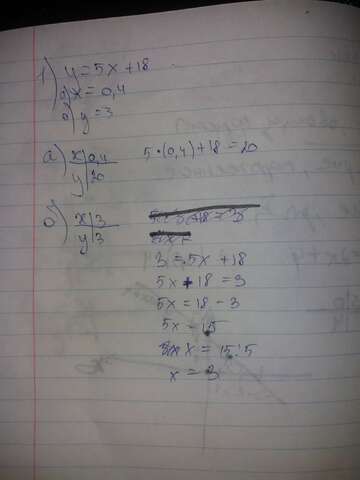 1) y = 5x + 18
а) x = 0,4
б) y = 3
а) x | 0,4
y | 20
5 · (0,4) + 18 = 20
б) x | 3
y | 3
3 = 5x + 18
5x + 18 = 3
5x = 18 - 3
5x - 15
x = 15 : 5
x = 3